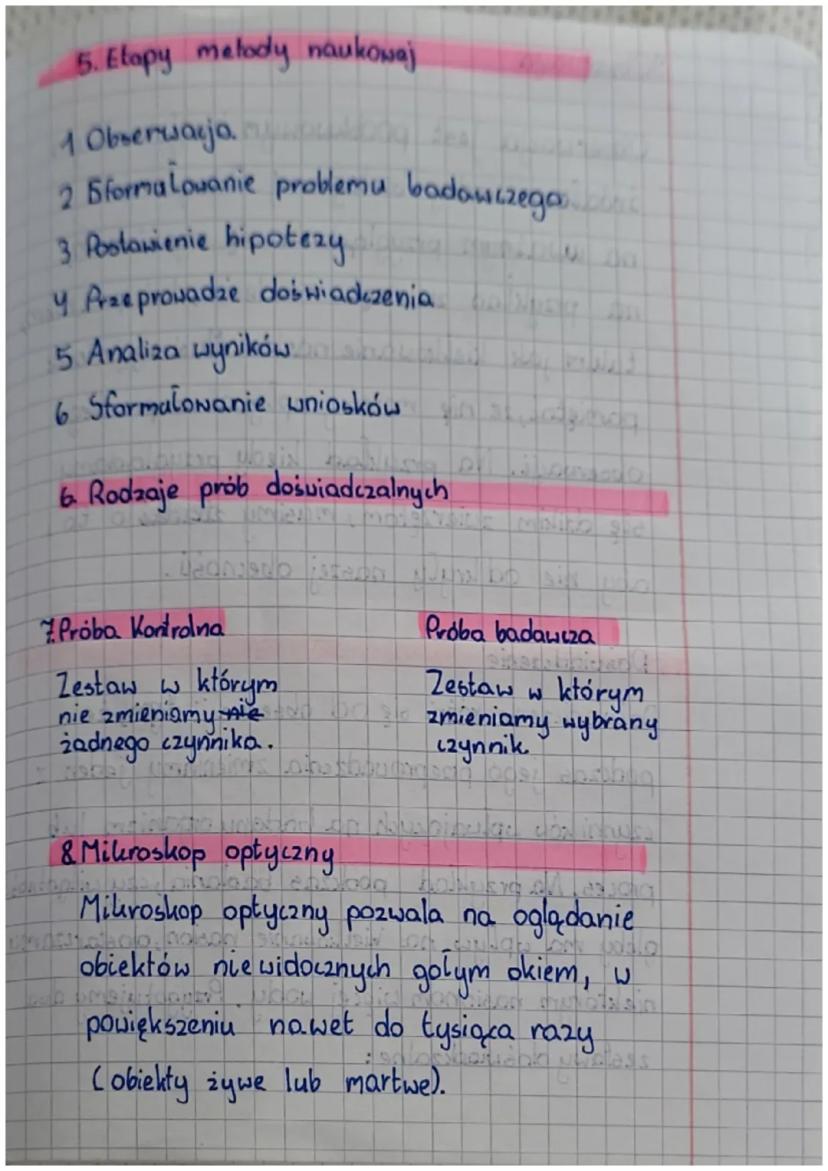 5. Etapy metody naukowej
1 Obserwacja.
2 Sformułowanie problemu badawczego.
3 Postawienie hipotezy
4 Przeprowadze doświadczenia
5 Analiza wyników
6 Sformułowanie wniosków
6 Rodzaje prób doświadczalnych
7. Próba Kontrolna
Zestaw w którym
nie zmieniamy nie
żadnego czynnika.
Próba badawcza
Zestaw w którym
zmieniamy wybrany
czynnik
8 Mikroskop optyczny
Mikroskop optyczny pozwala na oglądanie
obiektów niewidocznych gołym okiem, w
powiększeniu nawet do tysiąca razy
(obiekty żywe lub martwe).